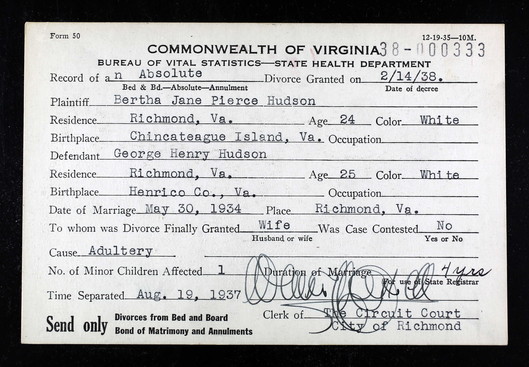 Form 50 12-19-35—10M.
COMMONWEALTH OF VIRGINIA 38-000333
BUREAU OF VITAL STATISTICS—STATE HEALTH DEPARTMENT
Record of an Absolute Divorce Granted on 2/14/38.
Bed & Bd.—Absolute—Annulment Date of decree
Plaintiff Bertha Jane Pierce Hudson
Residence Richmond, Va. Age 24 Color White
Birthplace Chincateague Island, Va. Occupation
Defendant George Henry Hudson
Residence Richmond, Va. Age 25 Color White
Birthplace Henrico Co., Va. Occupation
Date of Marriage May 30, 1934 Place Richmond, Va.
To whom was Divorce Finally Granted Wife Was Case Contested No
Husband or wife Yes or No
Cause Adultery
No. of Minor Children Affected 1 Duration of Marriage 4 yrs
For use of State Registrar
Time Separated Aug. 19, 1937
Send only Divorces from Bed and Board
Bond of Matrimony and Annulments
Clerk of The Circuit Court
City of Richmond